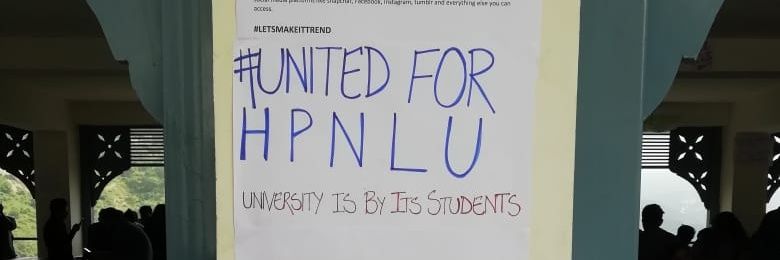 social media platforms like snapchat, Facebook, Instagram, tumblr and everything else you can
access.
#LETSMAKEITTREND
#UNITED FOR
HPNLU
UNIVERSITY IS BY ITS STUDENTS